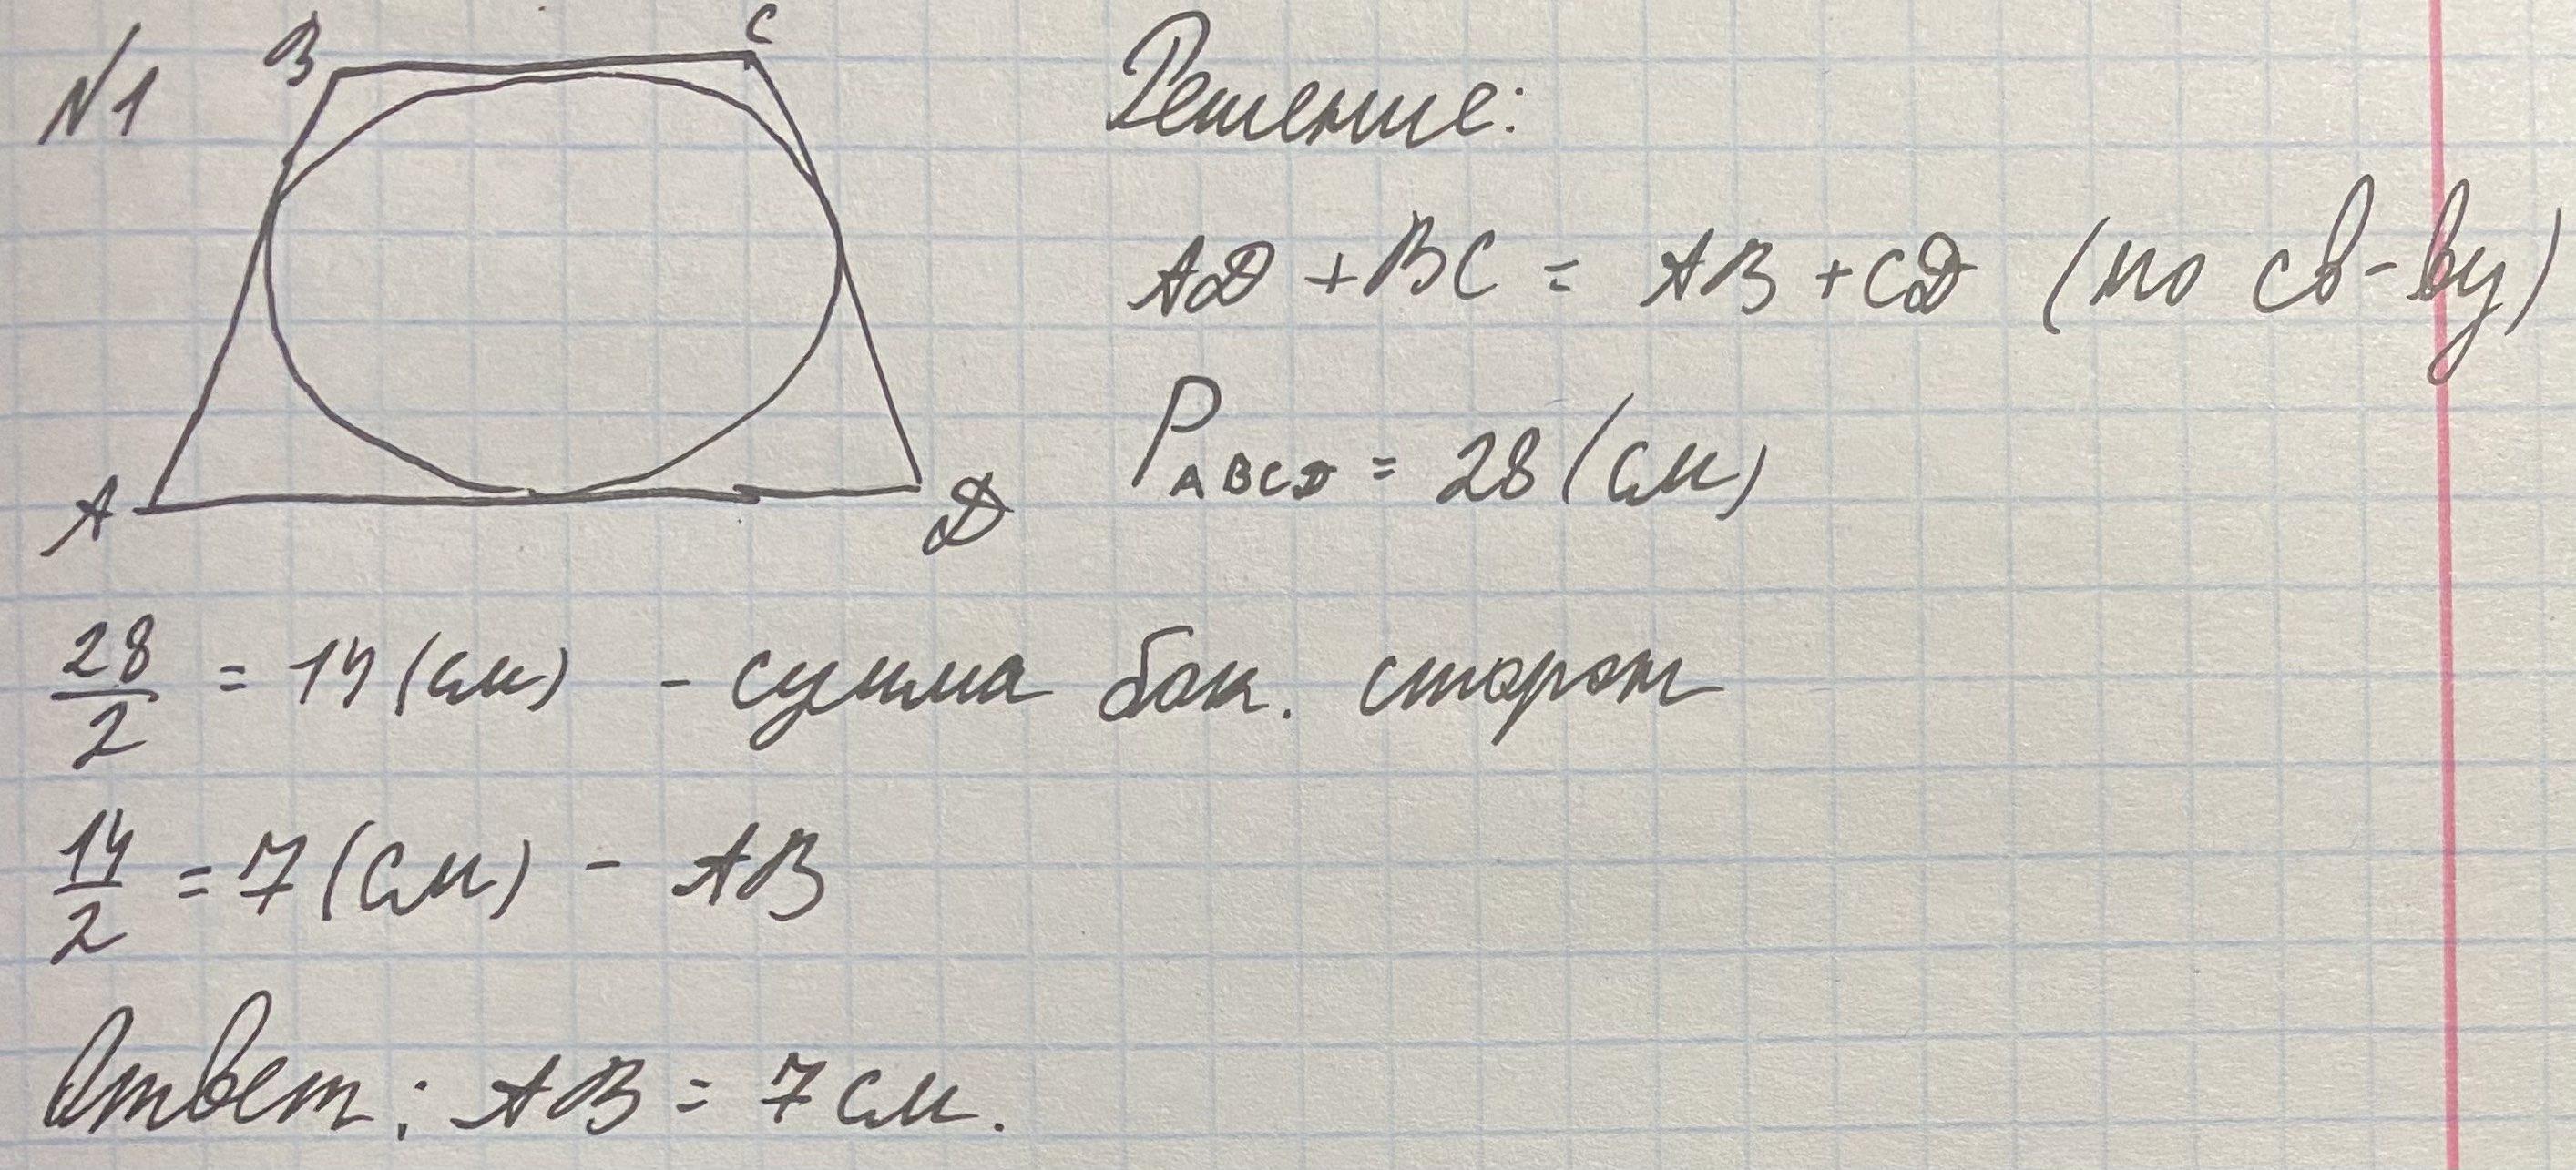 №1
B
C
A
D
Решение:
AD + BC = AB + CD (по св-ву)
P ABCD = 28 (см)
28/2 = 14 (см) - сумма бок. сторон
14/2 = 7 (см) - AB
Ответ: AB = 7 см.